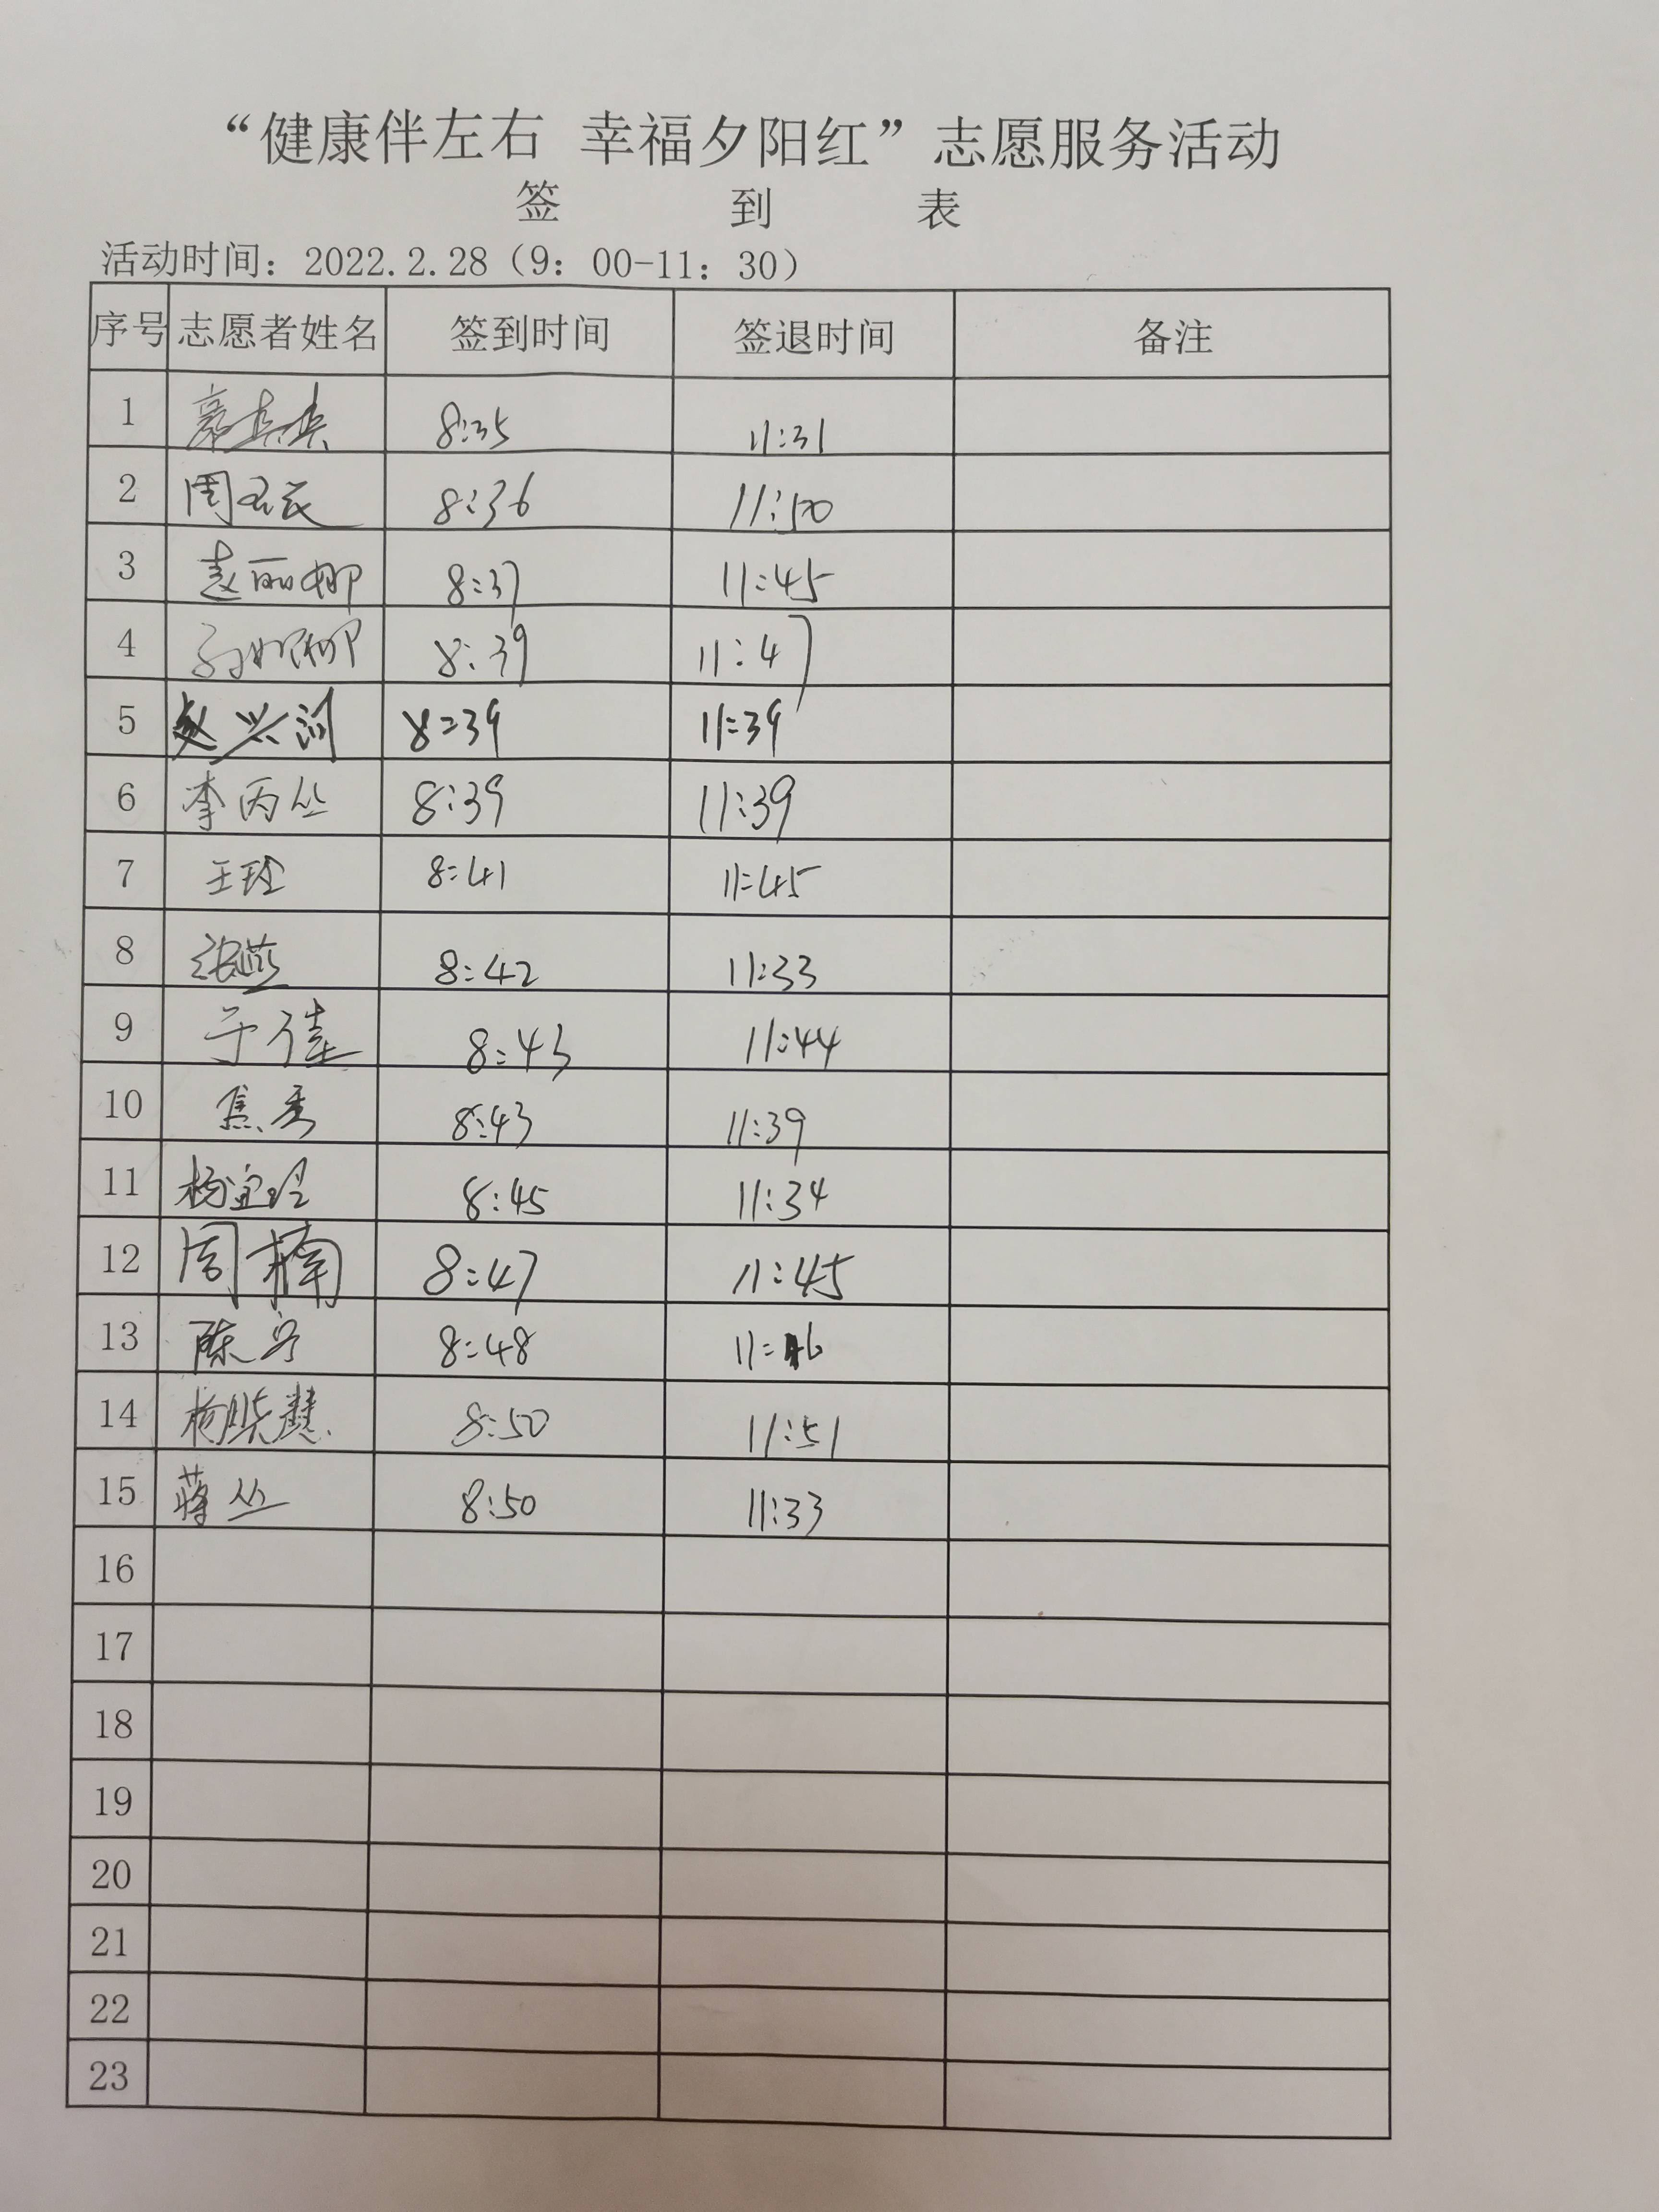 “健康伴左右 幸福夕阳红”志愿服务活动
签 到 表
活动时间：2022.2.28（9：00-11：30）
序号 志愿者姓名 签到时间 签退时间 备注
1 8:35 11:31
2 周 8:36 11:50
3 袁丽娜 8:37 11:45
4 8:39 11:47
5 赵兴 8:39 11:39
6 李丙丛 8:39 11:39
7 王玲 8:41 11:45
8 张燕 8:42 11:33
9 于佳 8:43 11:44
10 焦秀 8:43 11:39
11 杨宜玲 8:45 11:34
12 周楠 8:47 11:45
13 陈 8:48 11:
14 杨晓慧 8:50 11:51
15 蒋丛 8:50 11:33
16
17
18
19
20
21
22
23